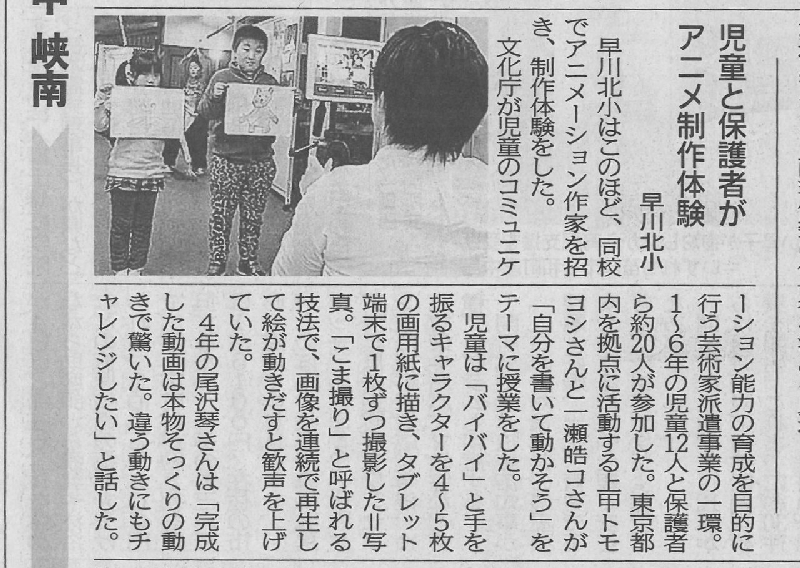 峡南
児童と保護者が
アニメ制作体験
早川北小
早川北小はこのほど、同校
でアニメーション作家を招
き、制作体験をした。
文化庁が児童のコミュニケ
ーション能力の育成を目的に
行う芸術家派遣事業の一環。
1〜6年の児童12人と保護者
ら約20人が参加した。東京都
内を拠点に活動する上甲トモ
ヨシさんと一瀬皓コさんが
「自分を書いて動かそう」を
テーマに授業をした。
児童は「バイバイ」と手を
振るキャラクターを4〜5枚
の画用紙に描き、タブレット
端末で1枚ずつ撮影した＝写
真。「こま撮り」と呼ばれる
技法で、画像を連続で再生し
て絵が動きだすと歓声を上げ
ていた。
4年の尾沢琴さんは「完成
した動画は本物そっくりの動
きで驚いた。違う動きにもチ
ャレンジしたい」と話した。